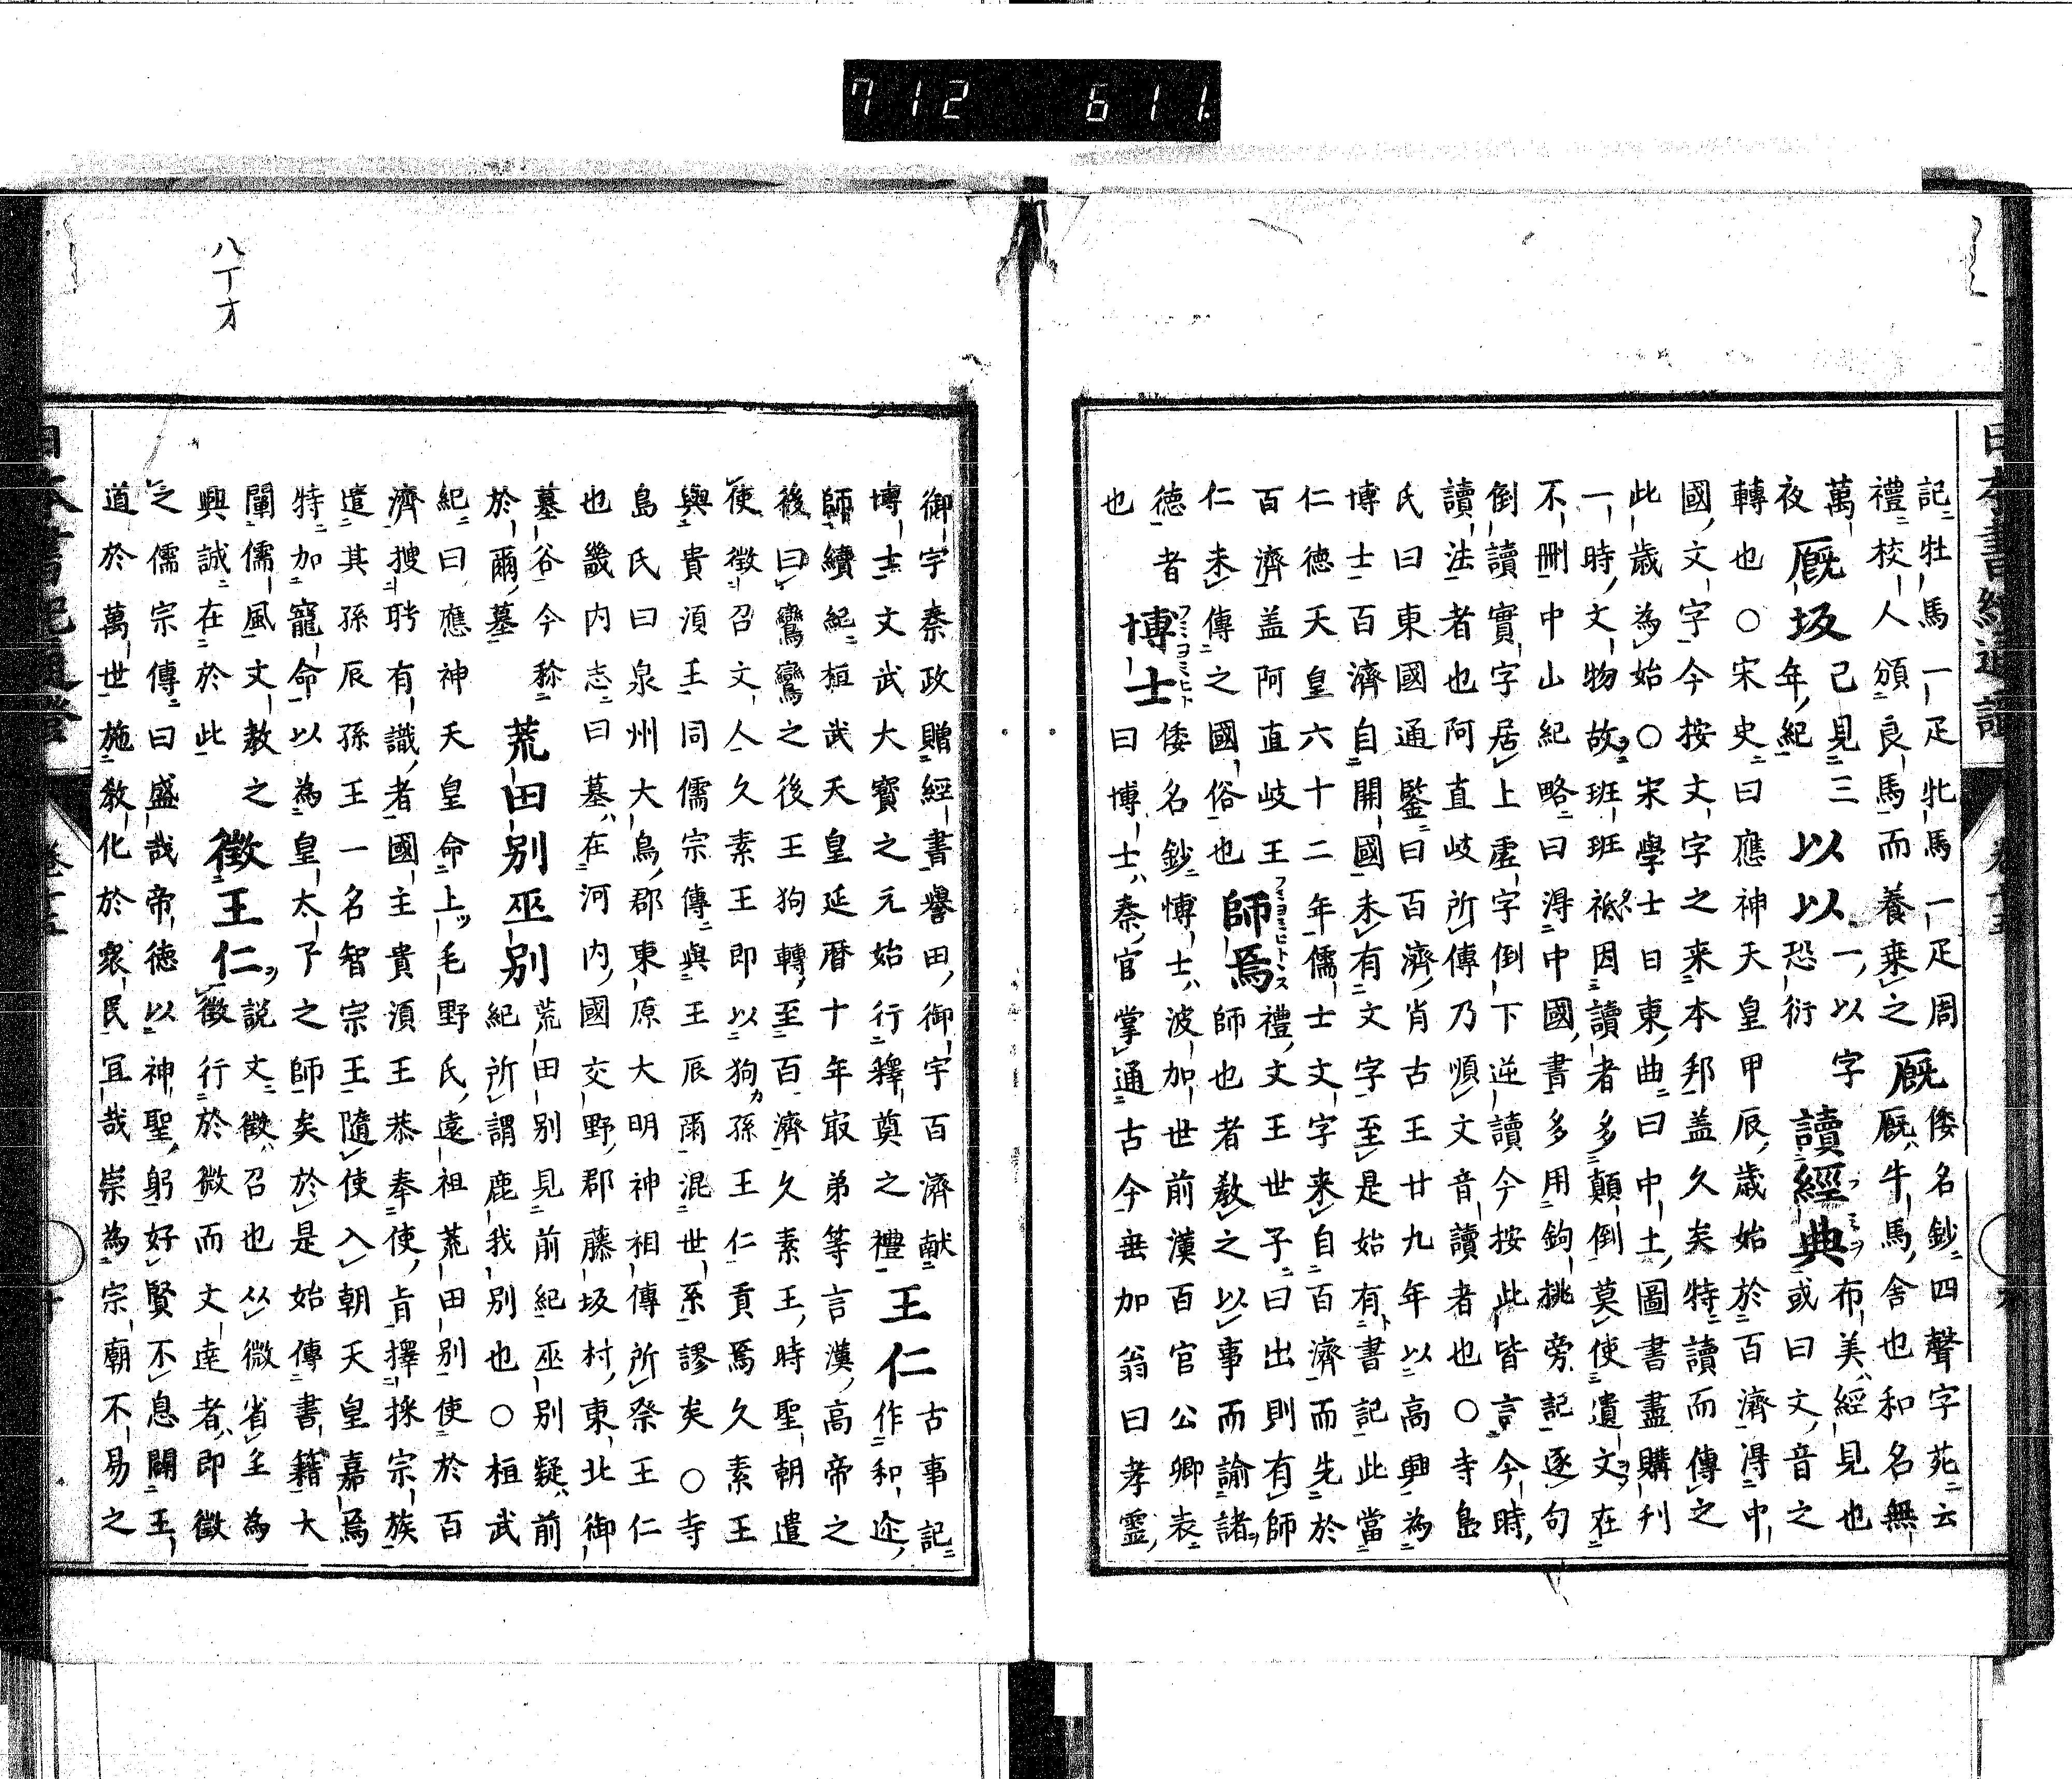 712 611.
日本書紀通證
記牡馬一疋牝馬一疋周倭名鈔四聲字苑云
禮校人頒良馬而養乗之廐廐牛馬舍也和名無
萬己見三以一以字布美經見也
夜廐坂年紀以以恐衍讀經典或曰文音之
轉也○宋史曰應神天皇甲辰歳始於百濟得中
國文字今按文字之来本邦盖久矣特讀而傳之
此歳為始○宋學士日東曲曰中土圖書盡購刊
一時文物故班班祗因讀者多顛倒莫使遺文在
不刪中山紀略曰得中國書多用鉤挑旁記逐句
倒讀實字居上虚字倒下逆讀今按此皆言今時
讀法者也阿直岐所傳乃順文音讀者也○寺島
氏曰東國通鑒曰百濟肖古王廿九年以高興為
博士百濟自開國未有文字至是始有書記此當
仁德天皇六十二年儒士文字来自百濟而先於
百濟盖阿直岐王師焉禮文王世子曰出則有師
仁未傳之國俗也師也者教之以事而諭諸
德者博士倭名鈔博士波加世前漢百官公卿表
也曰博士秦官掌通古今埀加翁曰孝靈
御宇秦政贈經書譽田御宇百濟献王仁古事記
博士文武大寶之元始行釋奠之禮作和迩
師續紀桓武天皇延暦十年最弟等言漢高帝之
後曰鸞鸞之後王狗轉至百濟久素王時聖朝遣
使徵召文人久素王即以狗孫王仁貢焉久素王
與貴須王同儒宗傳與王辰爾混世系謬矣○寺
島氏曰泉州大鳥郡東原大明神相傳所祭王仁
也畿内志曰墓在河内國交野郡藤坂村東北御
墓谷今稱荒田別巫別荒田別見前紀巫別疑前
於爾墓紀所謂鹿我別也○桓武
紀曰應神天皇命上毛野氏遠祖荒田別使於百
濟搜聘有識者國主貴須王恭奉使旨擇採宗族
遣其孫辰孫王一名智宗王隨使入朝天皇嘉焉
特加寵命以為皇太子之師矣於是始傳書籍大
闡儒風文教之徵王仁説文徵召也从微省壬為
興誠在於此徵行於微而文達者即徵
之儒宗傳曰盛哉帝徳以神聖躬好賢不息闢王
道於萬世施教化於衆民冝哉崇為宗廟不易之
八丁オ